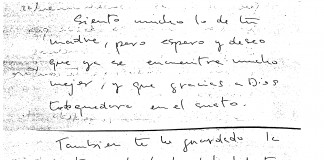 Siento mucho lo de tu
madre, pero espero y deseo
que ya se encuentre mucho
mejor, y que gracias a Dios
todo quedara en el susto.
Tambien te he guardado la